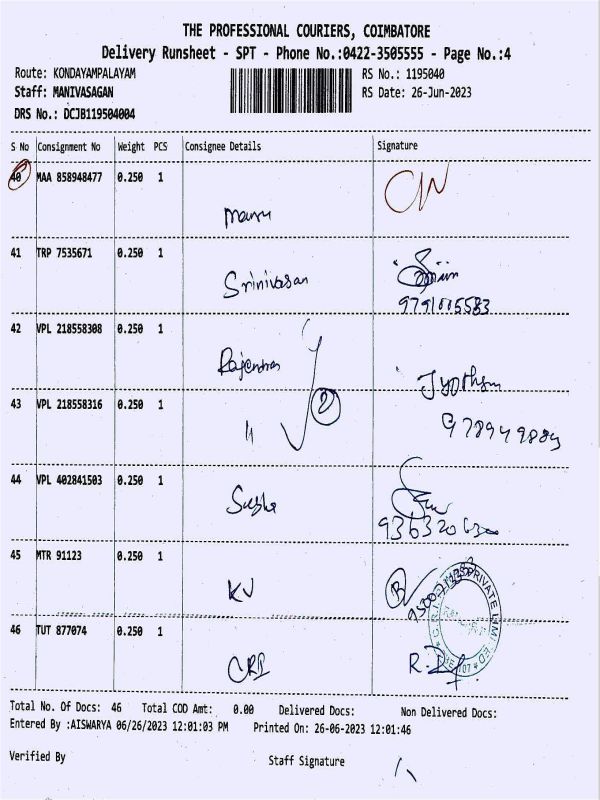 THE PROFESSIONAL COURIERS, COIMBATORE
Delivery Runsheet - SPT - Phone No.:0422-3505555 - Page No.:4
Route: KONDAYAMPALAYAM RS No.: 1195040
Staff: MANIVASAGAN RS Date: 26-Jun-2023
DRS No.: DCJB119504004
S No Consignment No Weight PCS Consignee Details Signature
40 MAA 858948477 0.250 1
41 TRP 7535671 0.250 1
Srinivasan
42 VPL 218558308 0.250 1
Rajendran
2
43 VPL 218558316 0.250 1
11
44 VPL 402841503 0.250 1
45 MTR 91123 0.250 1
KV
46 TUT 877074 0.250 1
CRI
Total No. Of Docs: 46 Total COD Amt: 0.00 Delivered Docs: Non Delivered Docs:
Entered By :AISWARYA 06/26/2023 12:01:03 PM Printed On: 26-06-2023 12:01:46
Verified By Staff Signature